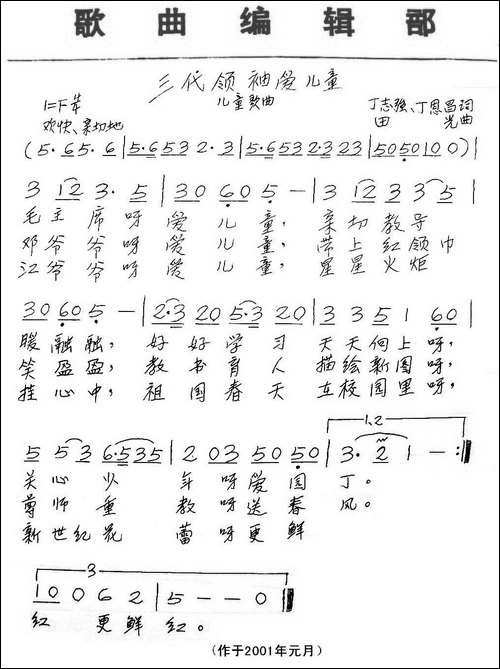 歌曲编辑部
三代领袖爱儿童
1=F 2/4 儿童歌曲 丁志强、丁恩昌词
欢快、亲切地 田光曲
(5·65·6|5·6532·3|5·6532·323|5050100)|
3 12 3· 5|30 60 5 -|3 12 3 35|
毛主席呀爱儿童，亲切教导
邓爷爷呀爱儿童，带上红领巾
江爷爷呀爱儿童，星星火炬
30 60 5 -|2·3 20 5·3 20|3 3 5 1 60|
暖融融，好好学习天天向上呀，
笑盈盈，教书育人描绘新图呀，
挂心中，祖国春天立校园里呀，
1,2
5 53 6·535|2 03 50 50|3·2 1 -:|
关心少年呀爱园丁。
尊师重教呀送春风。
新世纪花蕾呀更鲜
3
10 0 6 2|5 - - 0||
红更鲜红。
(作于2001年元月)